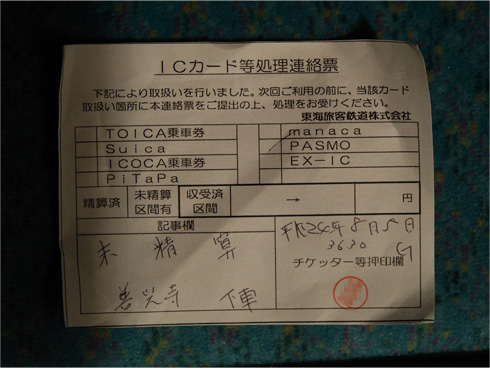 ICカード等処理連絡票
下記により取扱いを行いました。次回ご利用の前に、当該カード
取扱い箇所に本連絡票をご提出の上、処理をお受けください。
東海旅客鉄道株式会社
TOICA乗車券 manaca
Suica PASMO
ICOCA乗車券 EX-IC
PiTaPa
精算済 未精算区間有 収受済区間 → 円
記事欄
平成24年8月5日
3630G
チケッター等押印欄
未精算
善光寺 下車